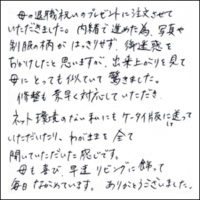 母の退職祝いのプレゼントに注文させて
いただきました。内緒で進めた為、写真や
制服の柄がはっきりせず、御迷惑を
おかけしたと思いますが、出来上がりを見て
母にとっても似ていて驚きました。
修整も素早く対応していただき、
ネット環境のない私にもケータイ版に送って
いただいたり、わがままを全て
聞いていただいた感じです。
母も喜び、早速リビングに飾って
毎日ながめています。ありがとうございました。